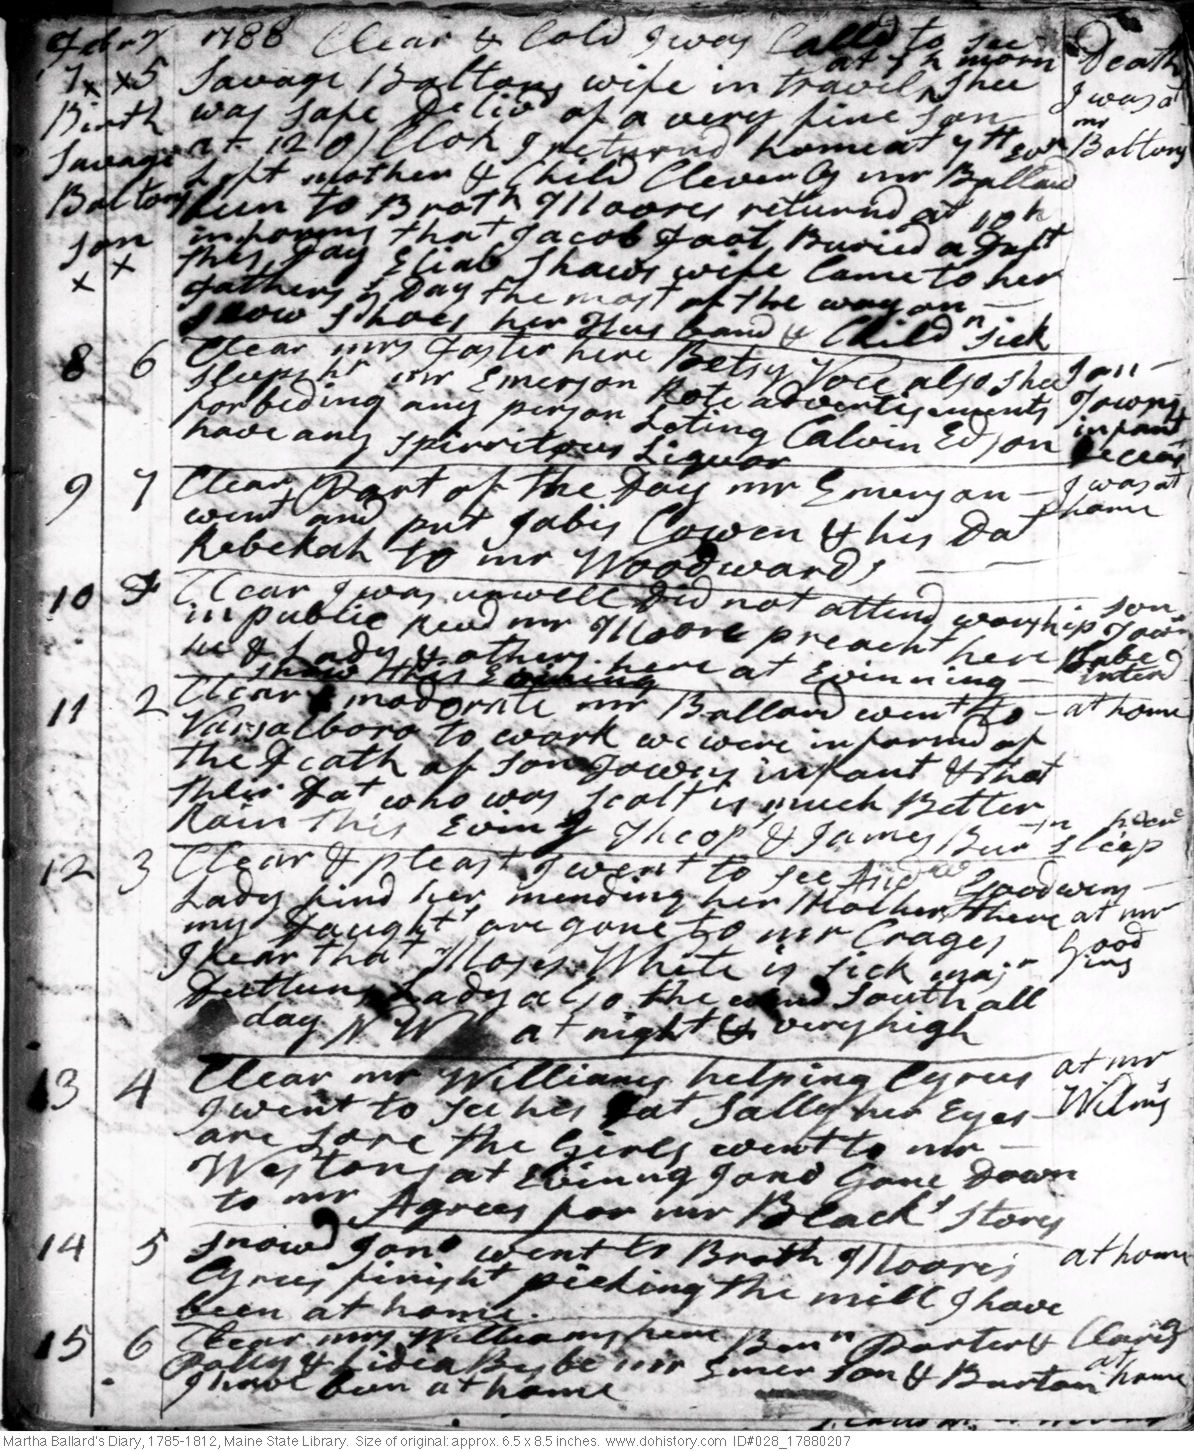 Febry 1788 Clear & Cold I was Calld to see
7 5 Savage Boltons wife in travel, Shee at 7 h morn Death
Birth was safe Delivd of a very fine son I was at mr
Savage at 12 O Clok I returnd home at Boltons
Boltons left mother & Child Cleverly mr Ballard
son been to Broth Moores returnd at 10 h
informs that Jacob
this Day Eliab Shaws wife Came to her
fathers ys Day the most of the way on
Snow Shoes her Husband & Child sick
8 6 Clear mrs Foster here Betsy also Shee
sleeps hr mr Emerson Rote advertisements
forbiding any person Leting Calvin Edson infant
have any spirritous Liquor
9 7 Clear Part of the Day mr Emerson I was at
went and put Jabis Cowen & his Dat home
Rebekah to mr Woodwards
10 F Clear I was unwell Did not attend worship
in public Read mr Moore preacht here Babe
he & Lady & others here at Evinning
Snow this Evining
11 2 Clear & moderate mr Ballard went to at home
Vassalboro to work we were informd of
the Death of Son Towns infant & that
their Dat who was scalt is much Better
Rain this Evin g Theop & James Burtn sleep here
12 3 Clear & pleast I went to see Goodwins
Lady find her mending her Mother there at mr
my Daughts are gone to mr Crages Good
I hear that Moses White is sick majr ins
Lady also the wind South all
day N W at night & very high
13 4 Clear mr Williams helping Cyrus at mr
I went to see his Dat Sally her Eyes Wilms
are sore the Girls went to mr
Westons at Evinng Jond Gone Down
to mr Agrees for mr Black's stores
14 5 Snowd Jond went to Broth Moores at home
Cyrus finisht picking the mill I have
been at home.
15 6 Clear mrs Williams here Benn Porter &
Polly & Lidea mr Emerson & Burton at home
I have been at home
Martha Ballard's Diary, 1785-1812, Maine State Library. Size of original: approx. 6.5 x 8.5 inches. www.dohistory.com ID#028_17880207